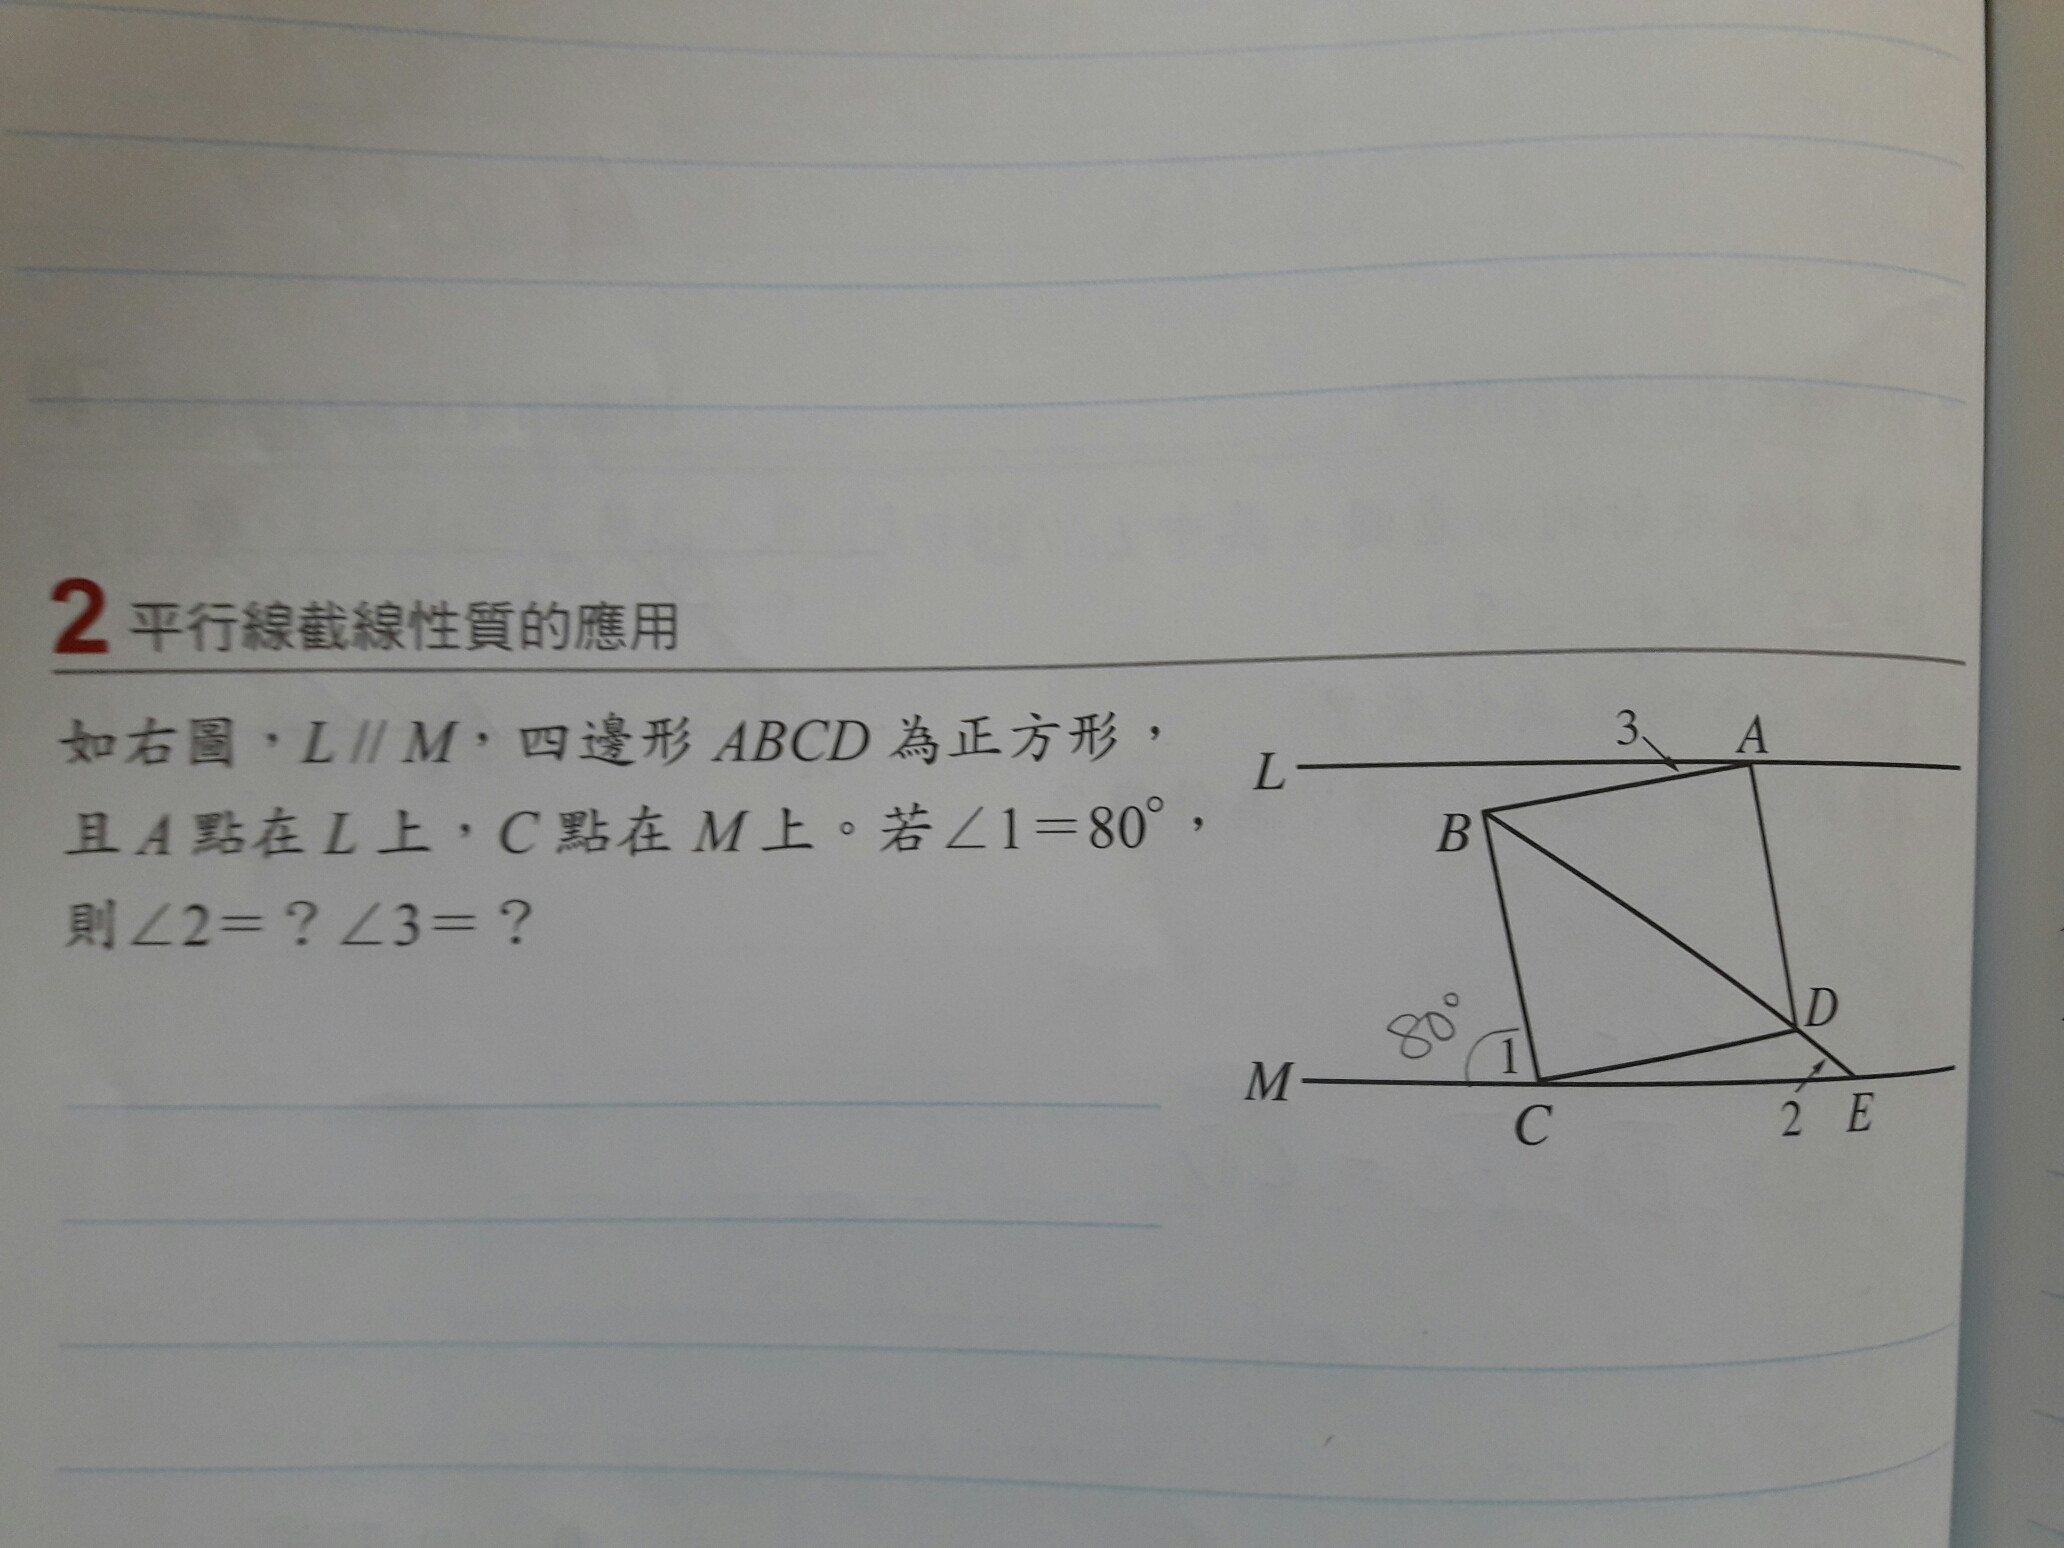 2 平行線截線性質的應用
如右圖，L // M，四邊形 ABCD 為正方形，
且 A 點在 L 上，C 點在 M 上。若∠1＝80°，
則∠2＝？∠3＝？
3
A
L
B
D
80°
1
M
C
2
E